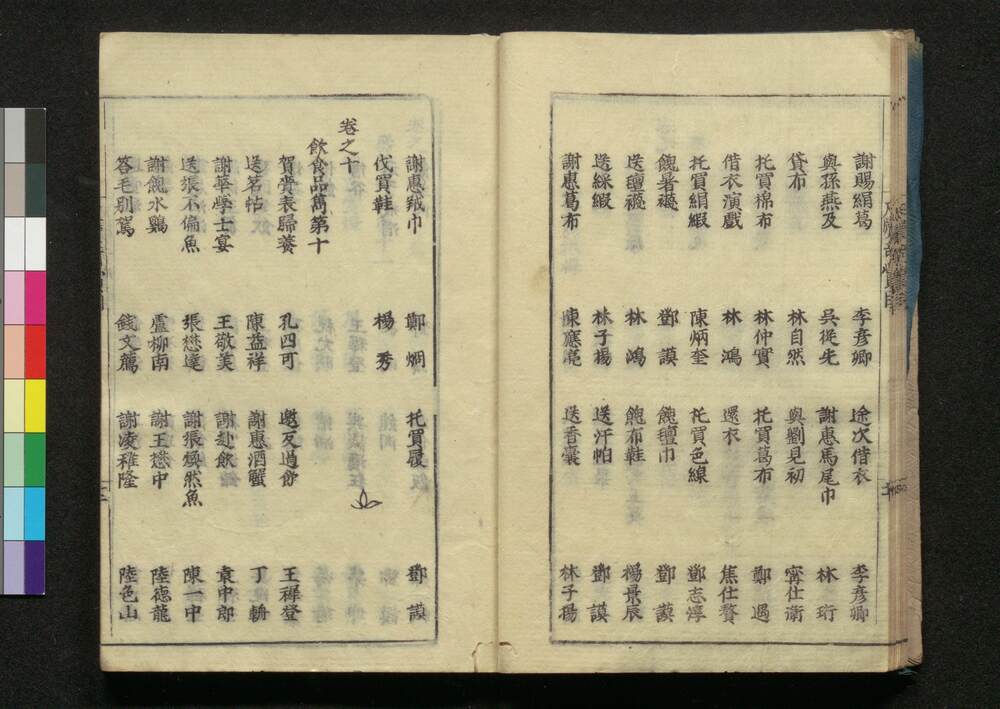 謝賜絹葛 李彥卿 途次借衣 李彥卿
與孫燕及 吳從先 謝惠馬尾巾 林 珩
貸布 林自然 與劉見初 甯仕衛
托買棉布 林仲實 托買葛布 鄭 遇
借衣演戲 林 鴻 還衣 焦仕贅
托買絹緞 陳炳奎 托買色線 鄧志淳
餽暑襪 鄧 謨 餽氊巾 鄧 謨
送氊襪 林 鴻 餽布鞋 楊景辰
送綵緞 林子楊 送汗帕 鄧 謨
謝惠葛布 陳應亮 送香囊 林子楊
謝惠羢巾 鄭 烱 托買履 鄧 謨
伐買鞋 楊 秀
卷之十
飲食品寓第十
賀黌表歸養 孔四可 邀友過飲 王穉登
送茗帖 陳益祥 謝惠酒蟹 丁
謝華學士宴 王敬美 謝赴飲 袁中郎
送張不偏魚 張懋達 謝張煥然魚 陳一中
謝餽水鷄 盧柳南 謝王懋中 陸德龍
荅毛別駕 錢文薦 謝凌稚隆 陸色山